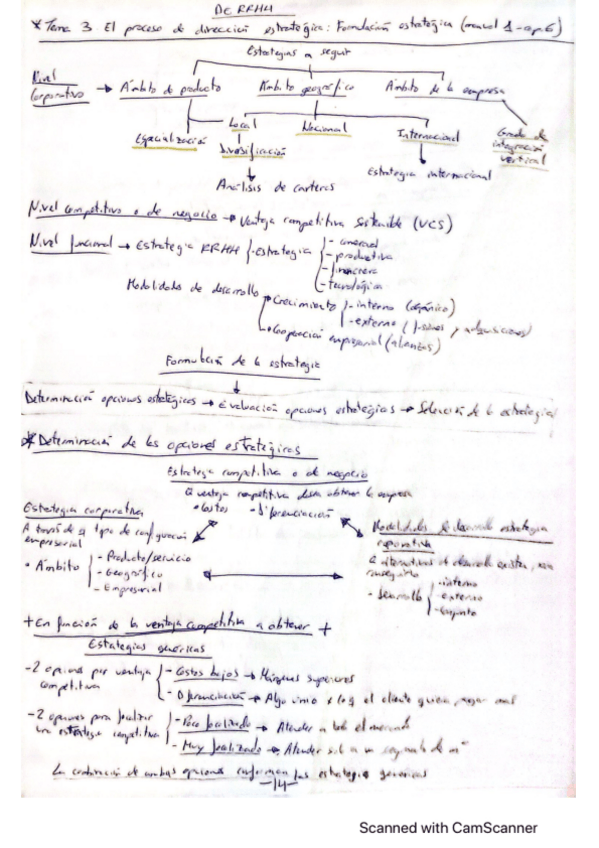 DE RRHH
* Tema 3 El proceso de dirección estratégica: Formulación estratégica (manual 1-cap.6)
Estrategias a seguir
Nivel Corporativo → Ámbito de producto Ámbito geográfico Ámbito de la empresa
Local Nacional Internacional Grado de integración vertical
Especialización Diversificación
Estrategia internacional
Análisis de cartera
Nivel competitivo o de negocio → Ventaja competitiva sostenible (VCS)
Nivel funcional → Estrategia RRHH - estrategia
- comercial
- productiva
- financiera
- tecnológica
Modalidades de desarrollo
Crecimiento - interno (orgánico)
- externo (fusiones y adquisiciones)
Cooperación empresarial (alianzas)
Formulación de la estrategia
Determinación opciones estratégicas → Evaluación opciones estratégicas → Selección de la estrategia
* Determinación de las opciones estratégicas
Estrategia competitiva o de negocio
Q ventaja competitiva desea obtener la empresa
- Costes - diferenciación
Estrategia corporativa
A través de q tipo de configuración empresarial
• Ámbito
- Producto/servicio
- Geográfico
- Empresarial
Modalidades de desarrollo estrategia corporativa
Q alternativas de desarrollo existen, para conseguirlo
- Desarrollo
- interno
- externo
- conjunto
+ En función de la ventaja competitiva a obtener +
Estrategias genéricas
- 2 opciones por ventaja competitiva
- Costes bajos → Márgenes superiores
- Diferenciación → Algo único x lo q el cliente quiera pagar más
- 2 opciones para focalizar una estrategia competitiva
- Poco focalizado → Atender a todo el mercado
- Muy focalizado → Atender solo a un segmento de mº
La combinación de ambas opciones conforman las estrategias genéricas
-14-
Scanned with CamScanner